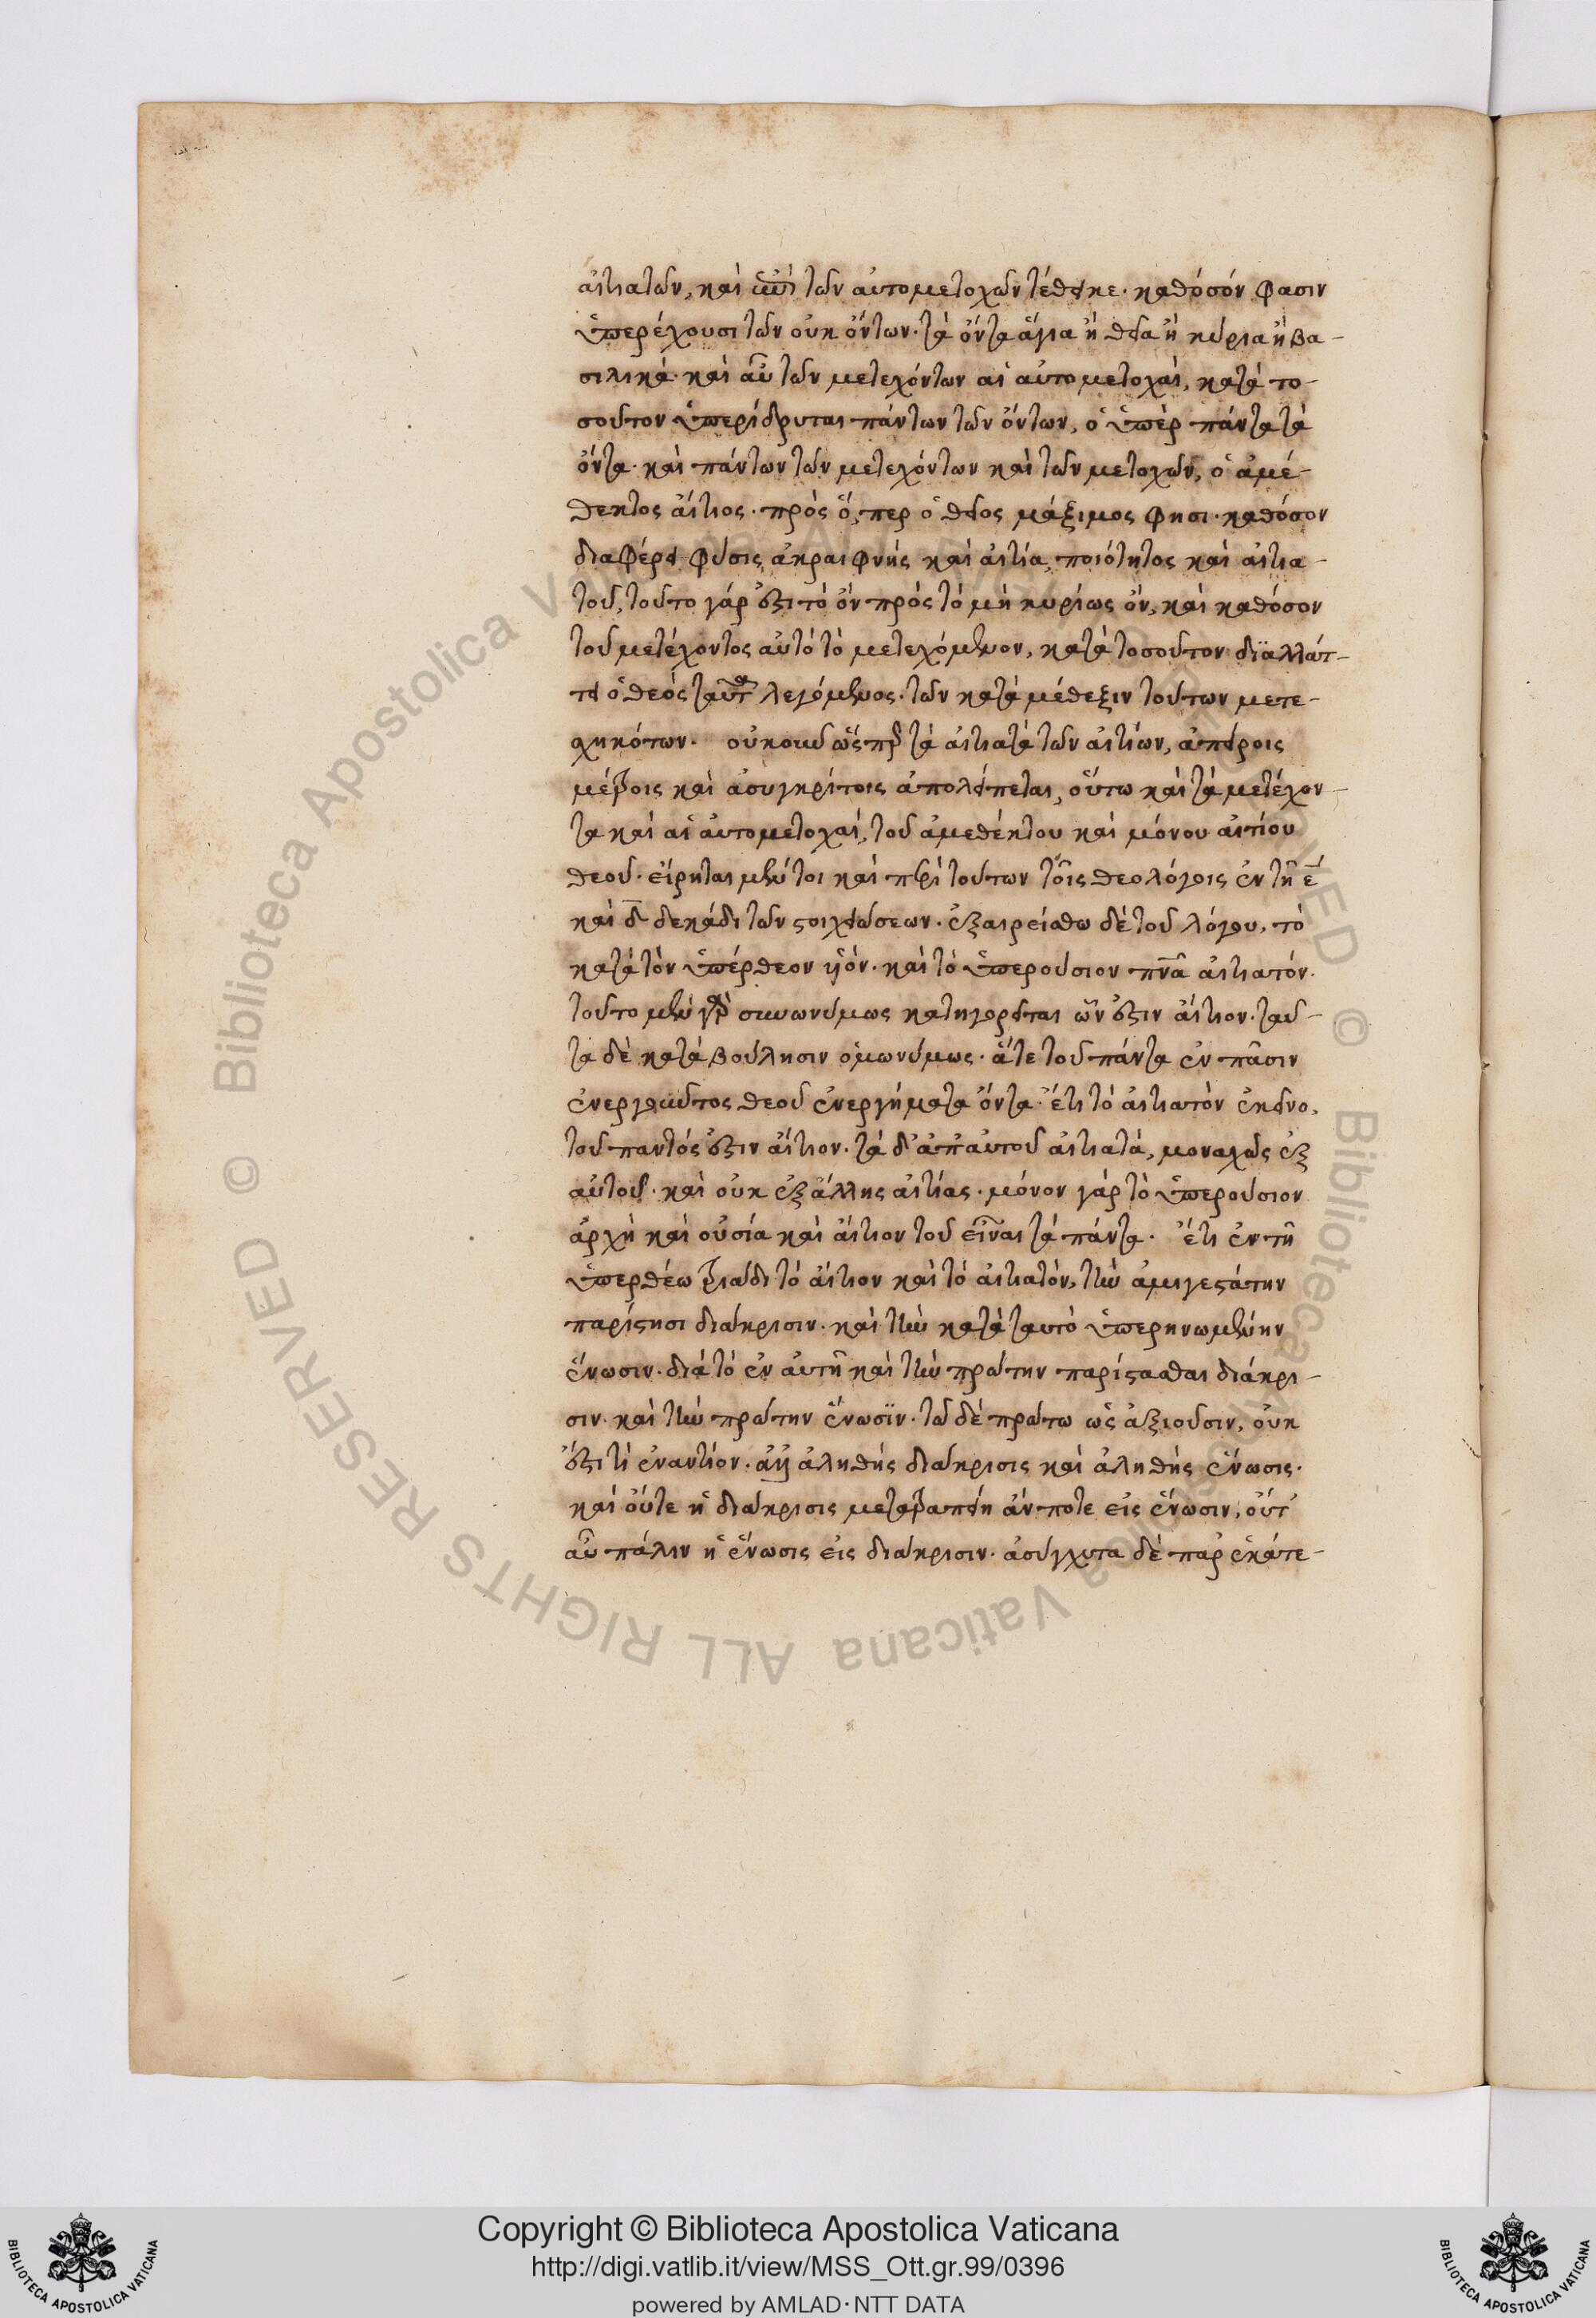 αἰτιατῶν, καὶ ἐπὶ τῶν αὐτομετοχῶν τέθεικε· καθόσόν φασιν
ὑπερέχουσι τῶν οὐκ ὄντων· τὰ ὄντα ἅγια ἢ θεῖα ἢ κύρια ἢ βα-
σιλικά· καὶ αὖ τῶν μετεχόντων αἱ αὐτομετοχαί, κατὰ το-
σοῦτον ὑπερίδρυται πάντων τῶν ὄντων, ὁ ὑπὲρ πάντα τὰ
ὄντα· καὶ πάντων τῶν μετεχόντων καὶ τῶν μετοχῶν, ὁ ἀμέ-
θεκτος αἴτιος· πρὸς ὅ, περ ὁ θεῖος μάξιμος φησι· καθόσον
διαφέρει φύσις ἀκραιφνὴς καὶ αἰτία, ποιότητος καὶ αἰτια-
τοῦ, τοῦτο γάρ ἐστι τὸ ὂν πρὸς τὸ μὴ κυρίως ὄν, καὶ καθόσον
τοῦ μετέχοντος αὐτὸ τὸ μετεχόμενον, κατὰ τοσοῦτον διαλλάτ-
τει ὁ θεὸς ταῦτα λεγόμενος· τῶν κατὰ μέθεξιν τούτων μετε-
χηκότων· οὐκοῦν ὥσπερ τὰ αἰτιατὰ τῶν αἰτίων, ἀπείροις
μέτροις καὶ ἀσυγκρίτοις ἀπολείπεται, οὕτω καὶ τὰ μετέχον-
τα καὶ αἱ αὐτομετοχαί, τοῦ ἀμεθέκτου καὶ μόνου αἰτίου
θεοῦ· εἴρηται μέντοι καὶ περὶ τούτων τοῖς θεολόγοις ἐν τῇ ε̅
καὶ δ̅ δεκάδι τῶν στοιχειώσεων· ἐξαιρείσθω δὲ τοῦ λόγου, τὸ
κατὰ τὸν ὑπέρθεον υἱόν· καὶ τὸ ὑπερούσιον πνᾶ αἰτιατόν·
τοῦτο μὲν γὰρ συνωνύμως κατηγορεῖται ὧν ἐστιν αἴτιον· ταῦ-
τα δὲ κατὰ βούλησιν ὁμωνύμως· ἅτε τοῦ πάντα ἐν πᾶσιν
ἐνεργοῦντος θεοῦ ἐνεργήματα ὄντα· ἔτι τὸ αἰτιατὸν ἐκεῖνο,
τοῦ παντός ἐστιν αἴτιον· τὰ δ' ἀπ' αὐτοῦ αἰτιατά, μοναχῶς ἐξ
αὐτοῦ· καὶ οὐκ ἐξ ἄλλης αἰτίας· μόνον γὰρ τὸ ὑπερούσιον
ἀρχὴ καὶ οὐσία καὶ αἴτιον τοῦ εἶναι τὰ πάντα· ἔτι ἐν τῇ
ὑπερθέω τριάδι τὸ αἴτιον καὶ τὸ αἰτιατόν, τὴν ἀμιγεστάτην
παρίστησι διάκρισιν· καὶ τὴν κατὰ ταυτὸ ὑπερηνωμένην
ἕνωσιν· διὰ τὸ ἐν αὐτῇ καὶ τὴν πρώτην παρίστασθαι διάκρι-
σιν· καὶ τὴν πρώτην ἕνωσϊν· τῶ δὲ πρώτω ὡς ἀξιοῦσιν, οὐκ
ἔστι τὶ ἐναντίον· ἀλλ' ἀληθὴς διάκρισις καὶ ἀληθὴς ἕνωσις·
καὶ οὔτε ἡ διάκρισις μετατραπείη ἄν ποτε εἰς ἕνωσιν, οὔτ'
αὖ πάλιν ἡ ἕνωσις εἰς διάκρισιν· ἀσύγχυτα δὲ παρ' ἑκάτε-
Copyright © Biblioteca Apostolica Vaticana
http://digi.vatlib.it/view/MSS_Ott.gr.99/0396
powered by AMLAD·NTT DATA
BIBLIOTECA APOSTOLICA VATICANA
BIBLIOTECA APOSTOLICA VATICANA
© Biblioteca Apostolica Vaticana ALL RIGHTS RESERVED